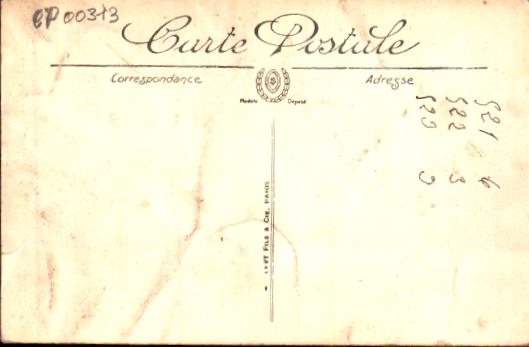 CP 00313
Carte Postale
Correspondance
Adresse
Modèle Déposé
LÉVY FILS & CIE, PARIS
521 6
522 3
523 3